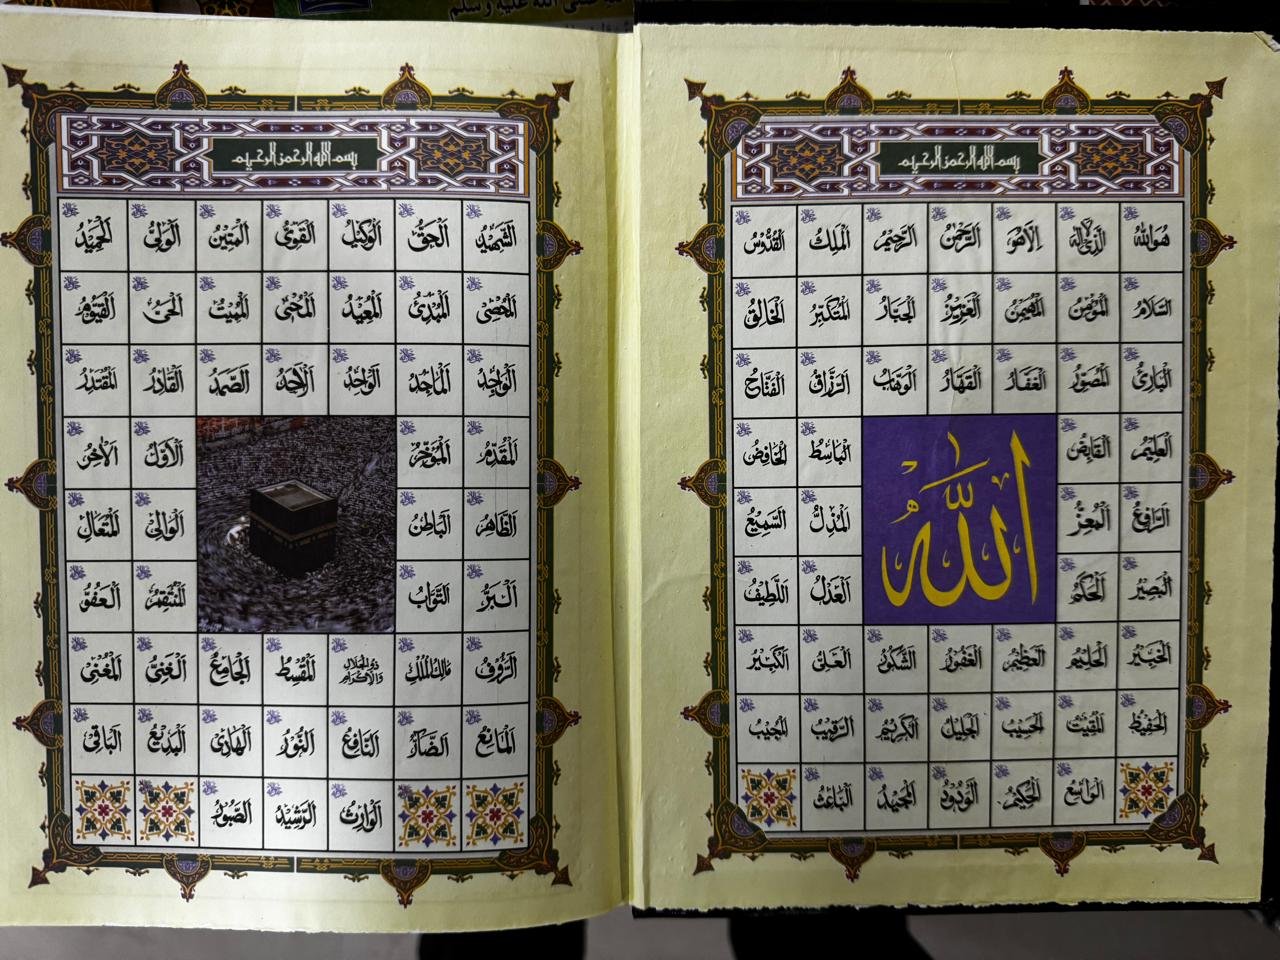 صلى الله عليه وسلم
بسم الله الرحمن الرحيم
هُوَ اللهُ الَّذِي لَا إِلَهَ إِلَّا هُوَ الرَّحْمٰنُ الرَّحِيمُ الْمَلِكُ الْقُدُّوسُ
السَّلَامُ الْمُؤْمِنُ الْمُهَيْمِنُ الْعَزِيزُ الْجَبَّارُ الْمُتَكَبِّرُ الْخَالِقُ
الْبَارِئُ الْمُصَوِّرُ الْغَفَّارُ الْقَهَّارُ الْوَهَّابُ الرَّزَّاقُ الْفَتَّاحُ
الْعَلِيمُ الْقَابِضُ الْبَاسِطُ الْخَافِضُ
اللهُ
الرَّافِعُ الْمُعِزُّ الْمُذِلُّ السَّمِيعُ
الْبَصِيرُ الْحَكَمُ الْعَدْلُ اللَّطِيفُ
الْخَبِيرُ الْحَلِيمُ الْعَظِيمُ الْغَفُورُ الشَّكُورُ الْعَلِيُّ الْكَبِيرُ
الْحَفِيظُ الْمُقِيتُ الْحَسِيبُ الْجَلِيلُ الْكَرِيمُ الرَّقِيبُ الْمُجِيبُ
الْوَاسِعُ الْحَكِيمُ الْوَدُودُ الْمَجِيدُ الْبَاعِثُ
بسم الله الرحمن الرحيم
الشَّهِيدُ الْحَقُّ الْوَكِيلُ الْقَوِيُّ الْمَتِينُ الْوَلِيُّ الْحَمِيدُ
الْمُحْصِي الْمُبْدِئُ الْمُعِيدُ الْمُحْيِي الْمُمِيتُ الْحَيُّ الْقَيُّومُ
الْوَاجِدُ الْمَاجِدُ الْوَاحِدُ الْأَحَدُ الصَّمَدُ الْقَادِرُ الْمُقْتَدِرُ
الْمُقَدِّمُ الْمُؤَخِّرُ الْأَوَّلُ الْآخِرُ
الظَّاهِرُ الْبَاطِنُ الْوَالِي الْمُتَعَالِ
الْبَرُّ التَّوَّابُ الْمُنْتَقِمُ الْعَفُوُّ
الرَّءُوفُ مَالِكُ الْمُلْكِ ذُو الْجَلَالِ وَالْإِكْرَامِ الْمُقْسِطُ الْجَامِعُ الْغَنِيُّ الْمُغْنِي
الْمَانِعُ الضَّارُّ النَّافِعُ النُّورُ الْهَادِي الْبَدِيعُ الْبَاقِي
الْوَارِثُ الرَّشِيدُ الصَّبُورُ